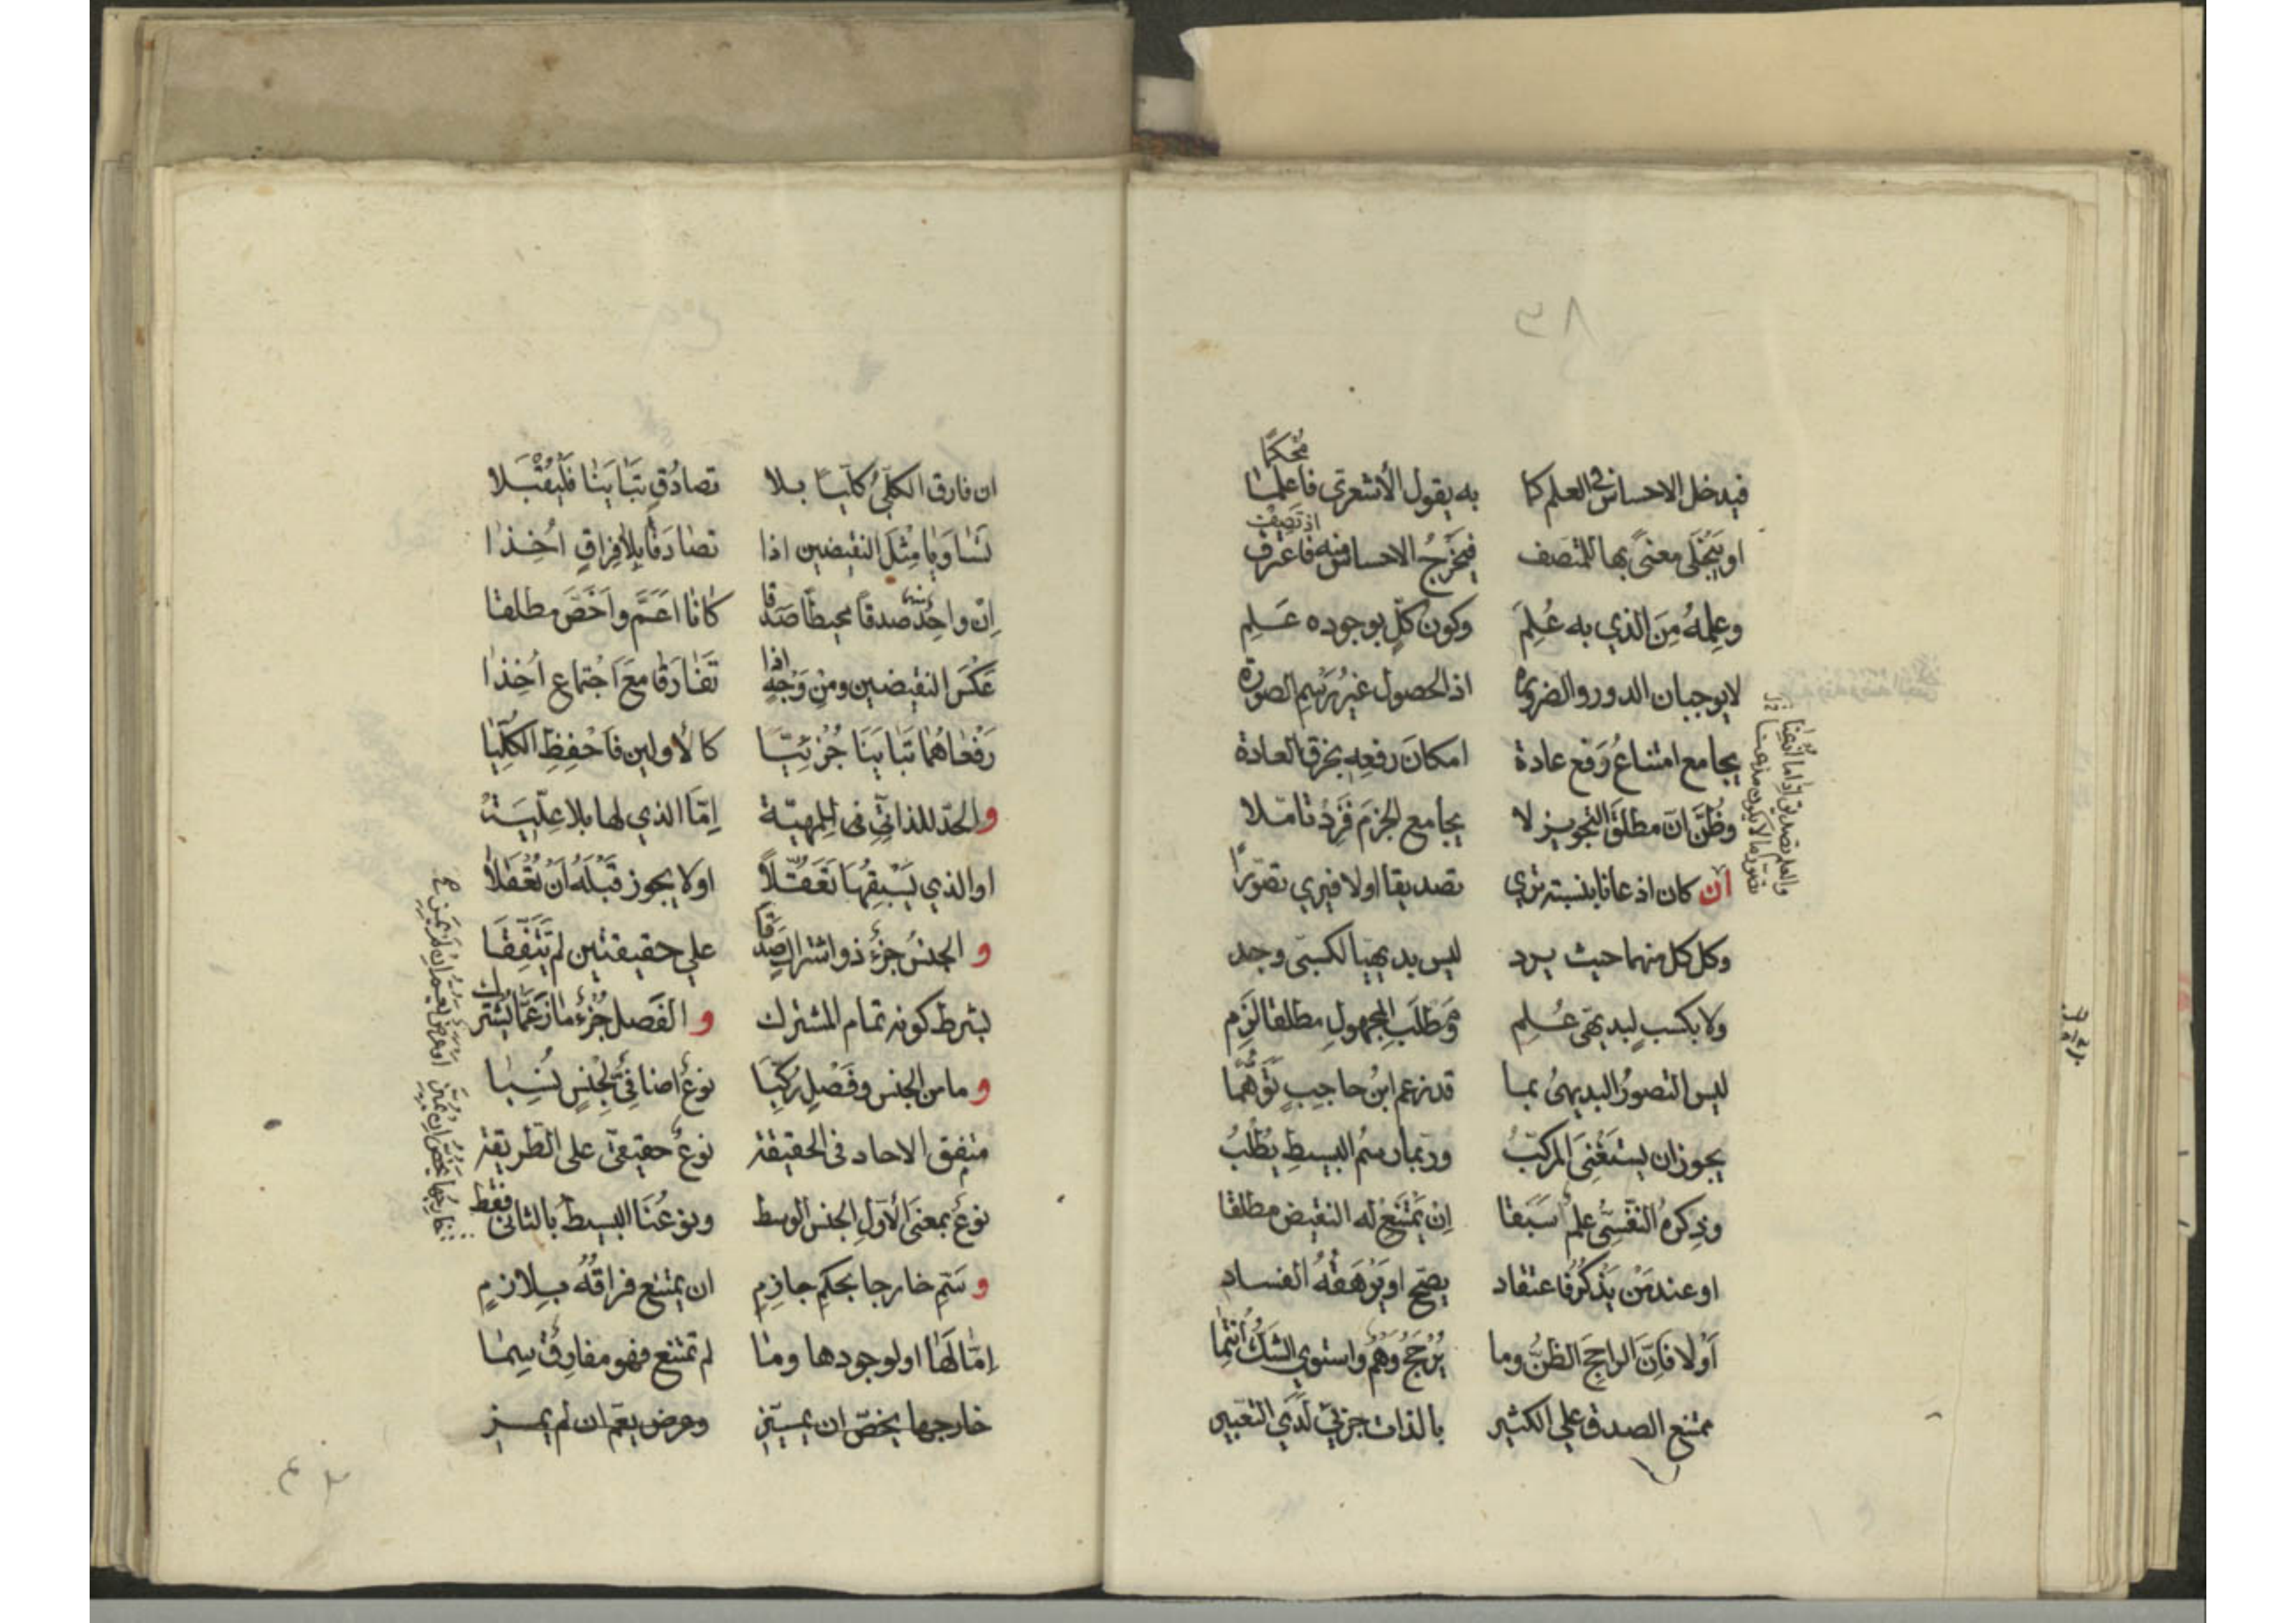 ٣٨
فيدخل الاحساس في العلم كما به يقول الأشعري فاعلما
مُحكَمًا
او يَنجَلي معنىً بها للمتصف فيَخرُجُ الاحساس منه فاعترف
وعِلمُهُ مِنَ الذي به عُلِمَ وكون كلٍّ بوجوده عَلِم
لايوجبان الدور والضروره اذ الحصول غيرُ رَسمِ الصورة
يجامع امتناعُ وَقع عادة امكانَ رفعِهِ بخرق العادة
وظُنَّ انّ مطلقَ التجويز لا يجامع الجزمَ فَرُدْ تامّلا
ان كان اذعانا بنسبته تري تصديقا اولا فيري تصوّرًا
وكل كل منهما حيث يرد ليس بديهيا لكسبى وجد
ولا بكسبٍ لبديهى عُلِم وطلب المجهولِ مطلقا لَزِم
ليس التصورُ البديهىُ بما قد زعم ابنُ حاجِبٍ تَوَهُّمًا
يجوز ان يستغنِىَ المركّبُ وربّما رسمُ البسيطِ يُطلَبُ
وذِكرُهُ النَفسِى علمٌ سَبَقا اِن يَمتَنِعْ له النقيض مطلقا
او عند مَن يَذكُرُ فاعتقاد يصحّ او يَرهَقُهُ الفساد
أوْلا فاِنّ الراجحَ الظنُّ وما يُرْجَحُ وَهمٌ واستوي الشكُّ انتما
ممتنع الصدق علي الكثير بالذات جزئيٌّ لَدَي التعبير
والعلم تصديق اذا ما اذعنا
ان فارق الكلىُّ كليًّا بلا تصادُقٍ تَبَايَنَا فَلْيُقْبَلا
تَساوَيا مِثلَ النقيضين اذا تصادَقا بلا فِراقٍ اُخِذا
اِنّ واحِدٌ صدقًا محيطًا صَدَقا كانا اَعَمَّ واَخَصَّ مطلقا
عَكسَ النقيضين ومِن وَجهٍ اذا تَفارَقا مَعَ اجتماع اُخِذا
رَفعاهُما تَبايَنَا جُزئِيّا كالأولين فاحفِظِ الكُلِّيّا
والحدّ للذاتى فى للمهيّة اِمّا الذي لها بلا عِلّيّة
او الذي يَسبِقُها تَعَقُّلاً اولا يجوز قَبلَهُ اَن تُعقَلا
و الجنسُ جزءٌ ذو اشتراكٍ صَدَقا علي حقيقتين لم يَتَّفِقَا
بشرط كونه تمام المشترك و الفَصل جُزءُ مازَ عَمّا يُشتَرك
و ما من الجنس وفَصلٍ رُكِّبَا نوعٌ اضافىٌّ لِجِنسٍ نُسِبا
متفق الاحاد فى الحقيقة نوعٌ حقيقىٌّ على الطريقة
نوعٌ بمعنَى الأوّلِ الجنس الوسط ونوعُنا البسيطُ بالثانى فقط
و سَمِّ خارجا بحكمٍ جازِمِ ان يمتنع فراقُهُ بِلازِمِ
اِمّا لَها او لوجودها وما لم تمتنع فهو مفارِقٌ سِما
خارجها يخصّ ان يميّز وعرض يعمّ ان لم يميز